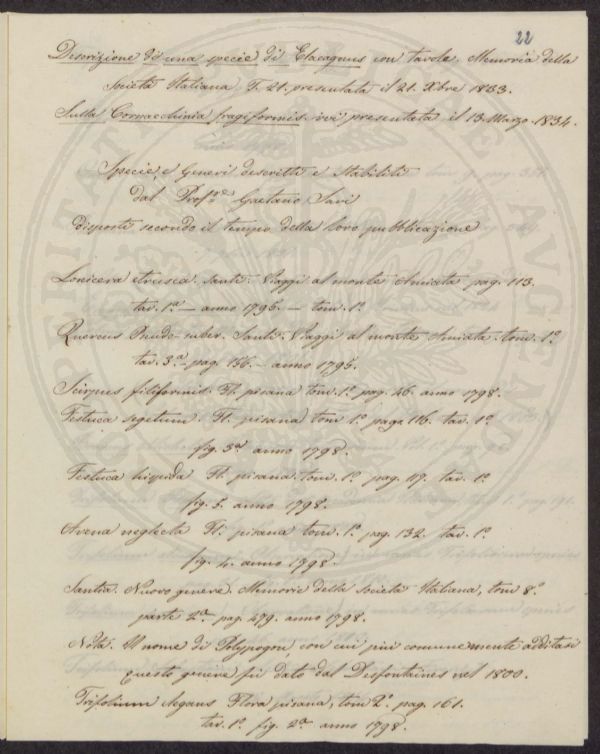 22
Descrizione di una specie di Elaeagnus con tavola. Memoria della
Società Italiana T. 21. presentata il 21. Xbre 1833.
Sulla Cornacchinia fragiformis. ivi presentata il 13. Marzo. 1834.
Specie, e Generi descritti e stabiliti
dal Prof.re Gaetano Savi
disposti secondo il tempo della loro pubblicazione
Lonicera etrusca. Santi. Viaggi al monte Amiata pag. 113.
tav. 1.a — anno 1795. — tom. 1.o
Quercus Pseudo-suber. Santi. Viaggi al monte Amiata. tom. 1.o
tav. 3.a — pag. 156. — anno 1795.
Scirpus filiformis. Fl. pisana tom. 1.o pag. 46. anno 1798.
Festuca segetum Fl. pisana tom. 1.o pag. 116. tav. 1.a
fig. 3.a anno 1798.
Festuca hispida Fl. pisana. tom. 1.o pag. 117. tav. 1.a
fig. 5. anno 1798.
Avena neglecta Fl. pisana tom. 1.o pag. 132. tav. 1.a
fig. 4. anno 1798.
Santia. Nuovo genere. Memorie della Società Italiana, tom 8.o
parte 2.a pag 479. anno 1798.
Nota. Il nome di Polypogon, con cui più comunemente additasi
questo genere fu dato dal Desfontaines nel 1800.
Trifolium elegans Flora pisana, tom 2.o pag. 161.
tav. 1.a fig. 2.a anno 1798.